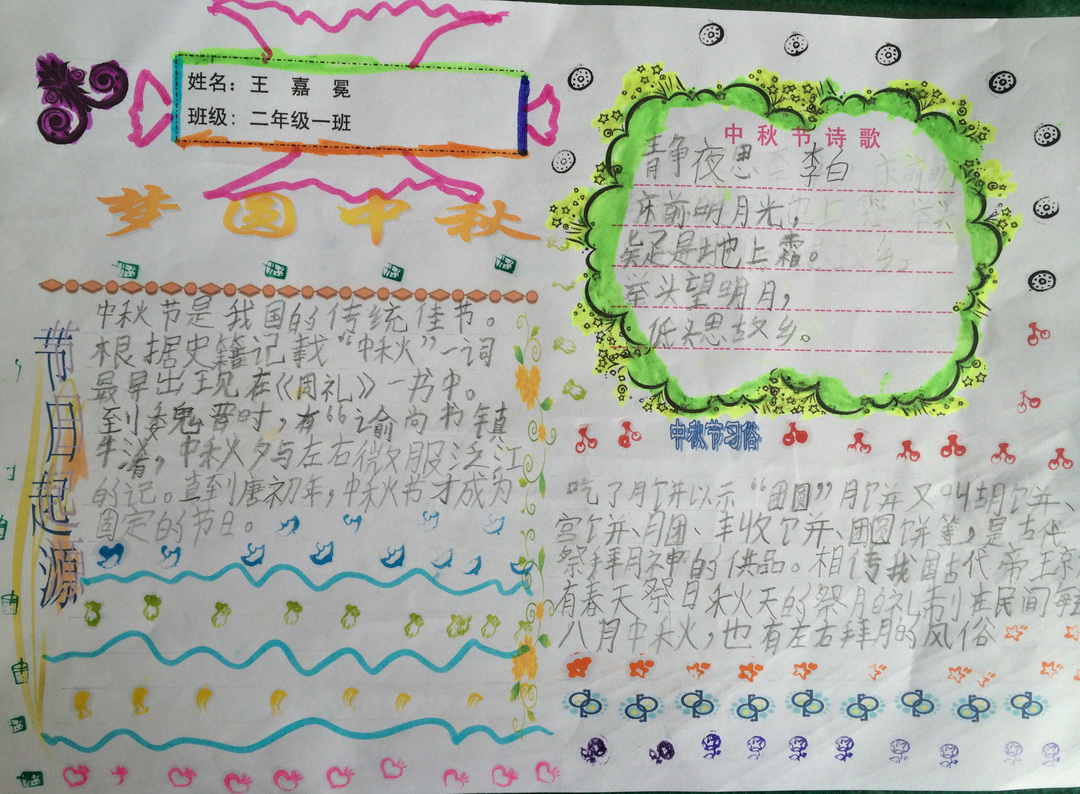 姓名：王 嘉 冕
班级：二年级一班
梦圆中秋
节日起源
中秋节是我国的传统佳节。
根据史籍记载“中秋”一词
最早出现在《周礼》一书中。
到魏晋时，有“谕尚书镇
牛渚，中秋夕与左右微服泛江
的记。直到唐初年，中秋节才成为
固定的节日。
中秋节诗歌
静夜思 李白
床前明月光，
疑是地上霜。
举头望明月，
低头思故乡。
中秋节习俗
吃了月饼以示“团圆”月饼又叫胡饼、
宫饼、月团、丰收饼、团圆饼等，是古代
祭拜月神的供品。相传我国古代帝王
有春天祭日秋天的祭月的礼制在民间每
八月中秋，也有左右拜月的风俗